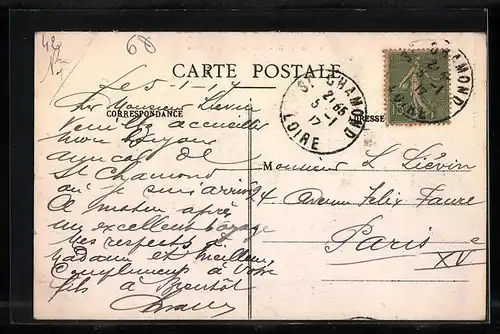 42
68
CARTE POSTALE
CORRESPONDANCE
ADRESSE
ST CHAMOND
21 55
5 -1
17
LOIRE
ST CHAMOND
15
Le 5-1-17
Cher Monsieur Liévin
Veuillez accueillir
mon bonjour
de
St Chamond
où je suis arrivé
ce matin après
un excellent voyage
Mes respects à
Madame et meilleurs
Compliments à votre
fils à Bientôt
Monsieur L Liévin
24 Avenue Felix Faure
Paris
XVe